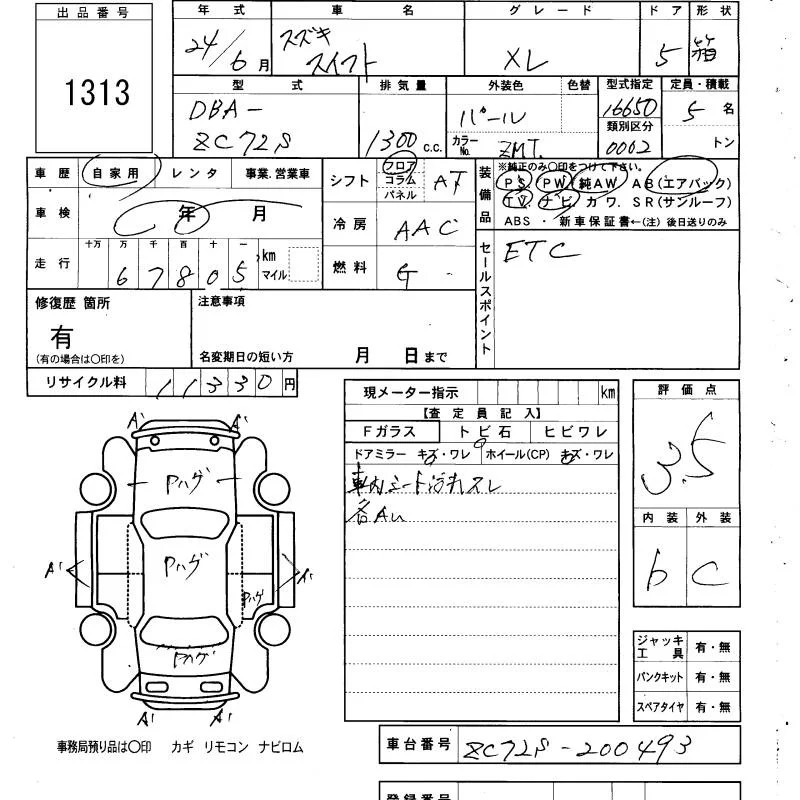 出品番号
1313
年式 車名 グレード ドア 形状
24/6月 スズキ スイフト XL 5 箱
型式 排気量 外装色 色替 型式指定 定員・積載
DBA-ZC72S 1300c.c. パール 16650 5名
カラーNo. ZMT. 類別区分 0002 トン
車歴 自家用 レンタ 事業.営業車
シフト フロア コラム パネル AT
装備品 ※純正のみ〇印をつけて下さい。
PS PW 純AW AB(エアバック)
TV. ナビ カワ. SR(サンルーフ)
ABS ・ 新車保証書←(注) 後日送りのみ
車検 年 月
冷房 AAC
走行 十万 万 千 百 十 一 km マイル
67805
燃料 G
セールスポイント ETC
修復歴 箇所
有
(有の場合は〇印を)
注意事項
名変期日の短い方 月 日まで
リサイクル料 11330円
現メーター指示 km
【査定員記入】
Fガラス トビ石 ヒビワレ
ドアミラー キズ・ワレ ホイール(CP) キズ・ワレ
車内シート汚れスレ
各AU
評価点
3.5
内装 外装
b C
A' A'
Pハゲ
A' Pハゲ A'
Pハゲ
Pハゲ
A' A'
ジャッキ工具 有・無
パンクキット 有・無
スペアタイヤ 有・無
事務局預り品は〇印 カギ リモコン ナビロム
車台番号 ZC72S-200493
登録番号